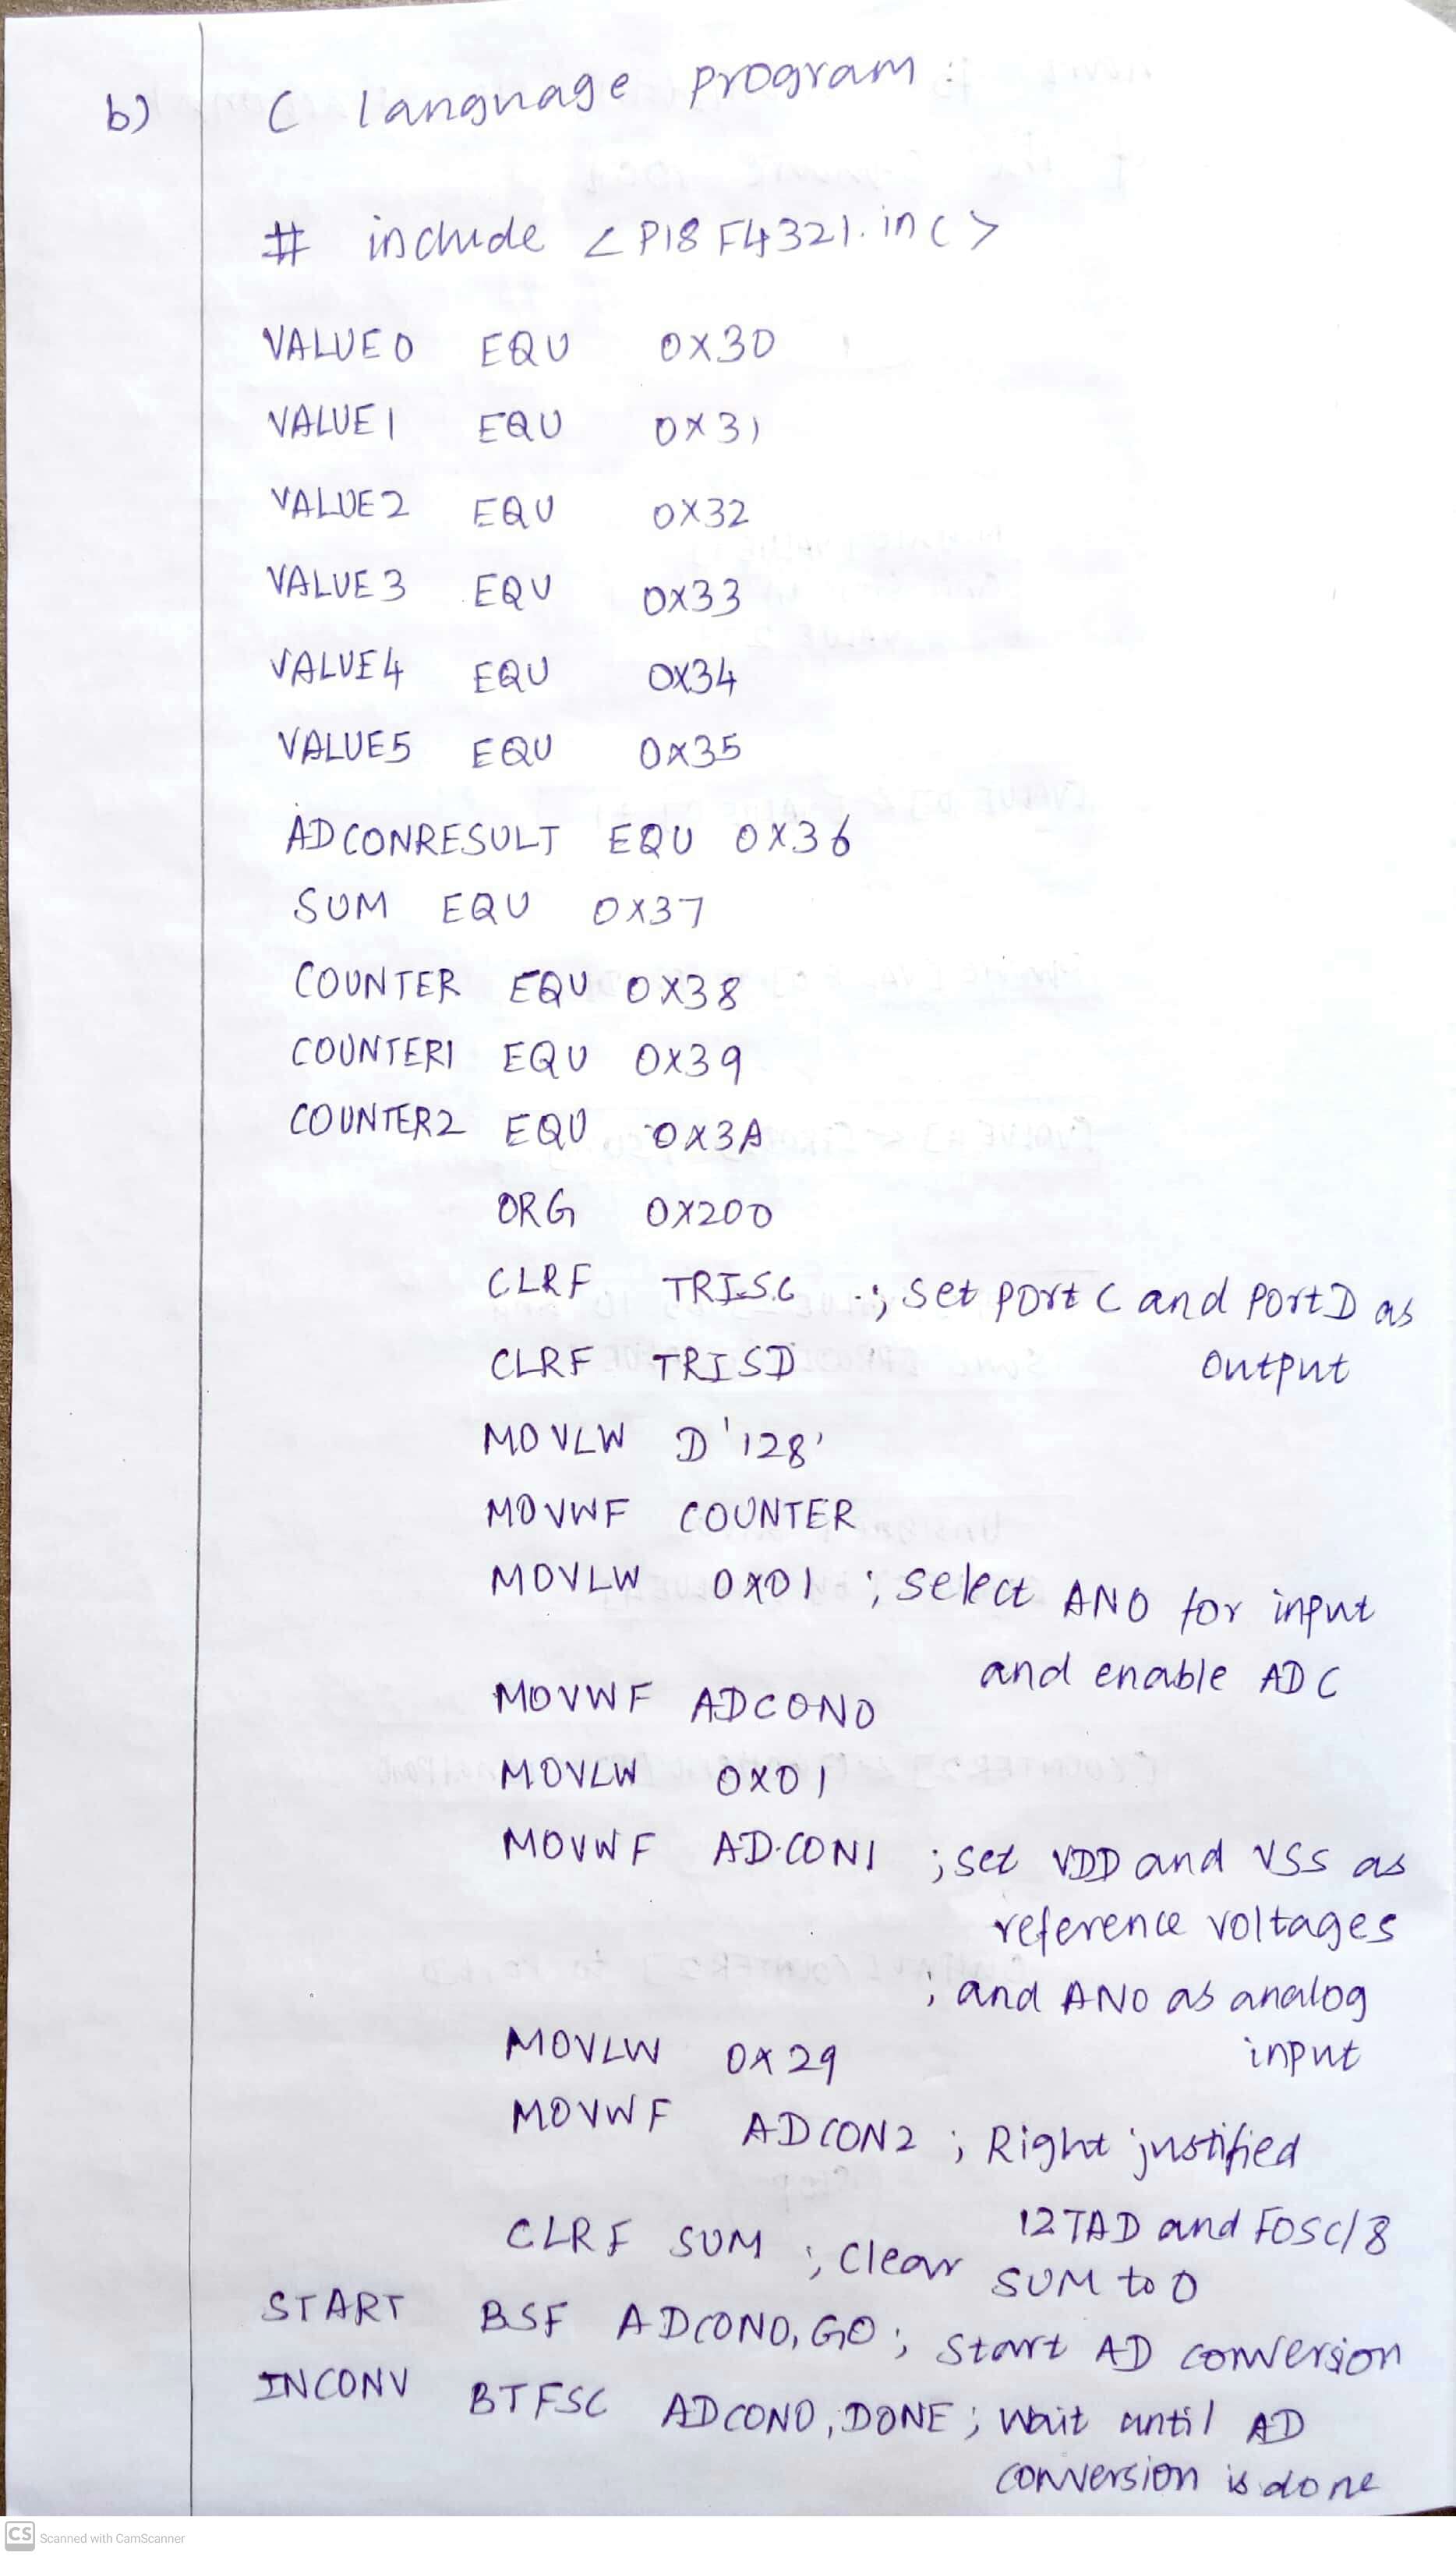 b) C language program:
# include <P18F4321.inc>
VALUE0 EQU 0X30
VALUE1 EQU 0X31
VALUE2 EQU 0X32
VALUE3 EQU 0X33
VALUE4 EQU 0X34
VALUE5 EQU 0X35
ADCONRESULT EQU 0X36
SUM EQU 0X37
COUNTER EQU 0X38
COUNTER1 EQU 0X39
COUNTER2 EQU 0X3A
ORG 0X200
CLRF TRISC ; set port C and Port D as
CLRF TRISD output
MOVLW D'128'
MOVWF COUNTER
MOVLW 0X01 ; select AN0 for input
and enable ADC
MOVWF ADCON0
MOVLW 0X01
MOVWF ADCON1 ; set VDD and VSS as
reference voltages
; and AN0 as analog
MOVLW 0X29 input
MOVWF ADCON2 ; Right justified
12TAD and FOSC/8
CLRF SUM ; Clear SUM to 0
START BSF ADCON0, GO ; start AD conversion
INCONV BTFSC ADCON0, DONE ; wait until AD
conversion is done
CS Scanned with CamScanner